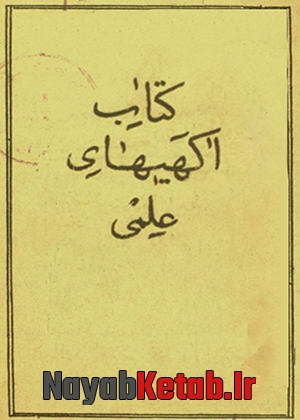 کتاب
اگهیهای
علمی
NayabKetab.Ir